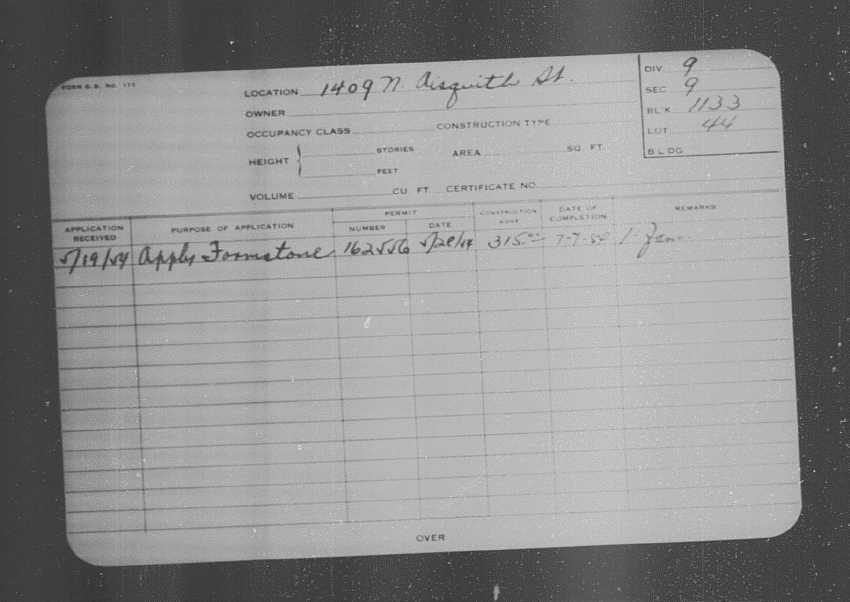 FORM B. B. No. 115
LOCATION 1409 N. Aisquith St.
OWNER
OCCUPANCY CLASS CONSTRUCTION TYPE
HEIGHT STORIES AREA SQ. FT.
FEET
VOLUME CU. FT. CERTIFICATE NO.
DIV. 9
SEC. 9
BL'K 1133
LOT 44
BLDG
APPLICATION RECEIVED PURPOSE OF APPLICATION PERMIT NUMBER DATE CONSTRUCTION COST DATE OF COMPLETION REMARKS
5/19/54 Apply Formstone 162556 5/20/54 315.00 7-7-54 1-
OVER